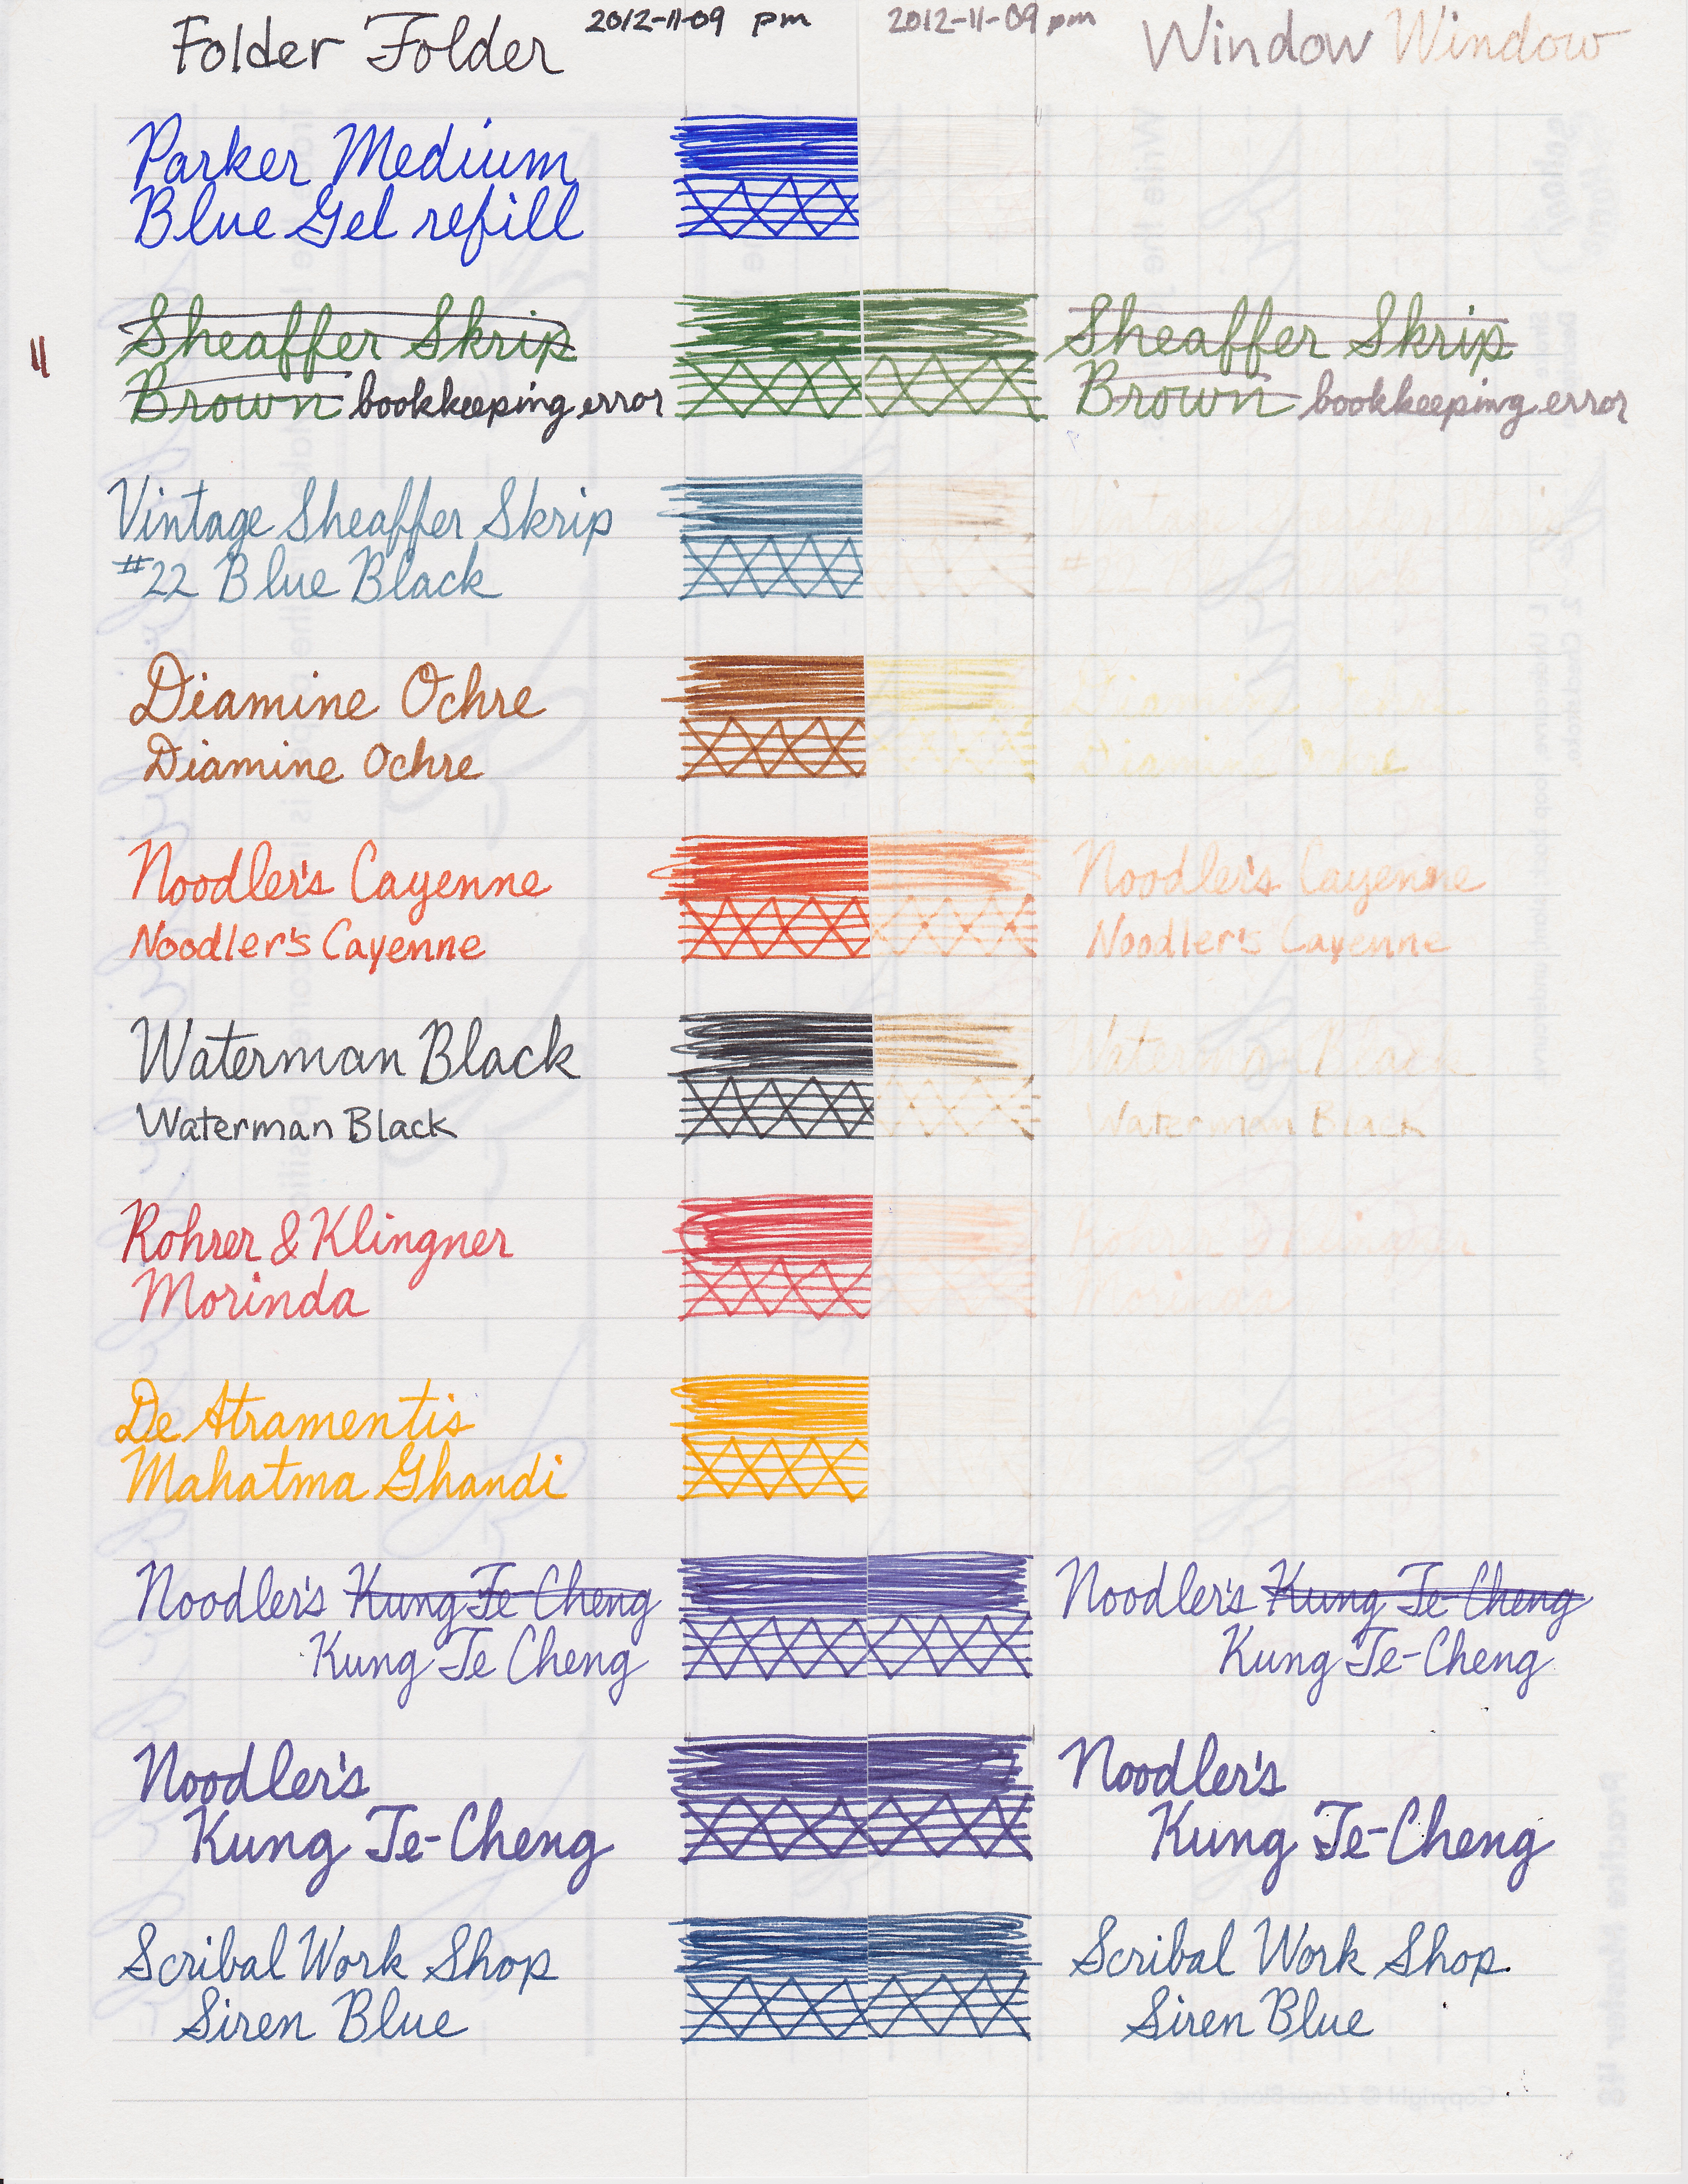 Folder Folder 2012-11-09 pm 2012-11-09 pm Window Window
Parker Medium
Blue Gel refill
Sheaffer Skrip Sheaffer Skrip
11
Brown bookkeeping error Brown bookkeeping error
Vintage Sheaffer Skrip
#22 Blue Black #22
Diamine Ochre Diamine Ochre
Diamine Ochre Diamine Ochre
Noodler's Cayenne Noodler's Cayenne
Noodler's Cayenne Noodler's Cayenne
Waterman Black Waterman Black
Waterman Black Waterman Black
Rohrer & Klingner Rohrer & Klingner
Morinda Morinda
De Atramentis
Mahatma Ghandi
Noodler's Kung Te Cheng Noodler's Kung Te-Cheng
Kung Te Cheng Kung Te-Cheng
Noodler's Noodler's
Kung Te-Cheng Kung Te-Cheng
Scribal Work Shop Scribal Work Shop.
Siren Blue Siren Blue
Practice Master 48
Copyright © Zaner-Bloser, Inc.